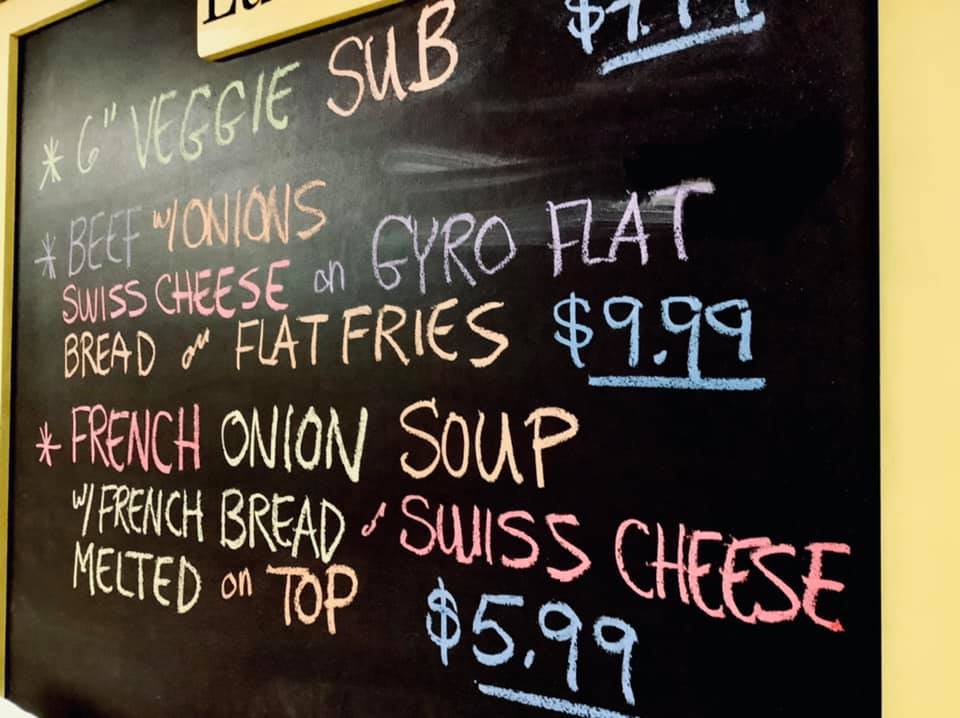 * 6" VEGGIE SUB
* BEEF w/ ONIONS
SWISS CHEESE on GYRO FLAT
BREAD FLAT FRIES $9.99
* FRENCH ONION SOUP
w/ FRENCH BREAD & SWISS CHEESE
MELTED on TOP
$5.99